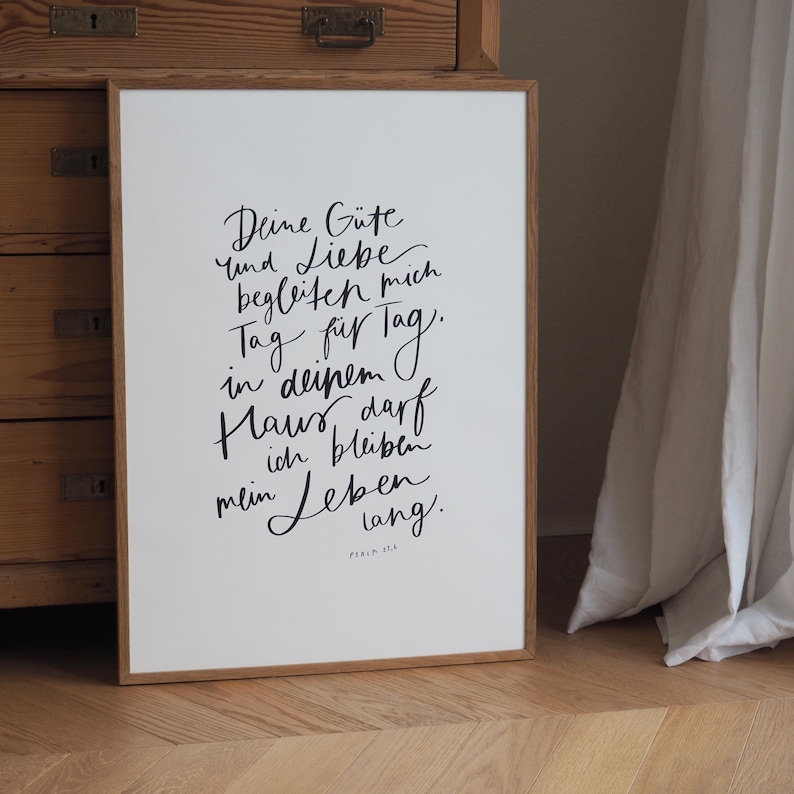 Deine Güte
und Liebe
begleiten mich
Tag für Tag.
in deinem
Haus darf
ich bleiben
mein Leben
lang.
PSALM 23,6